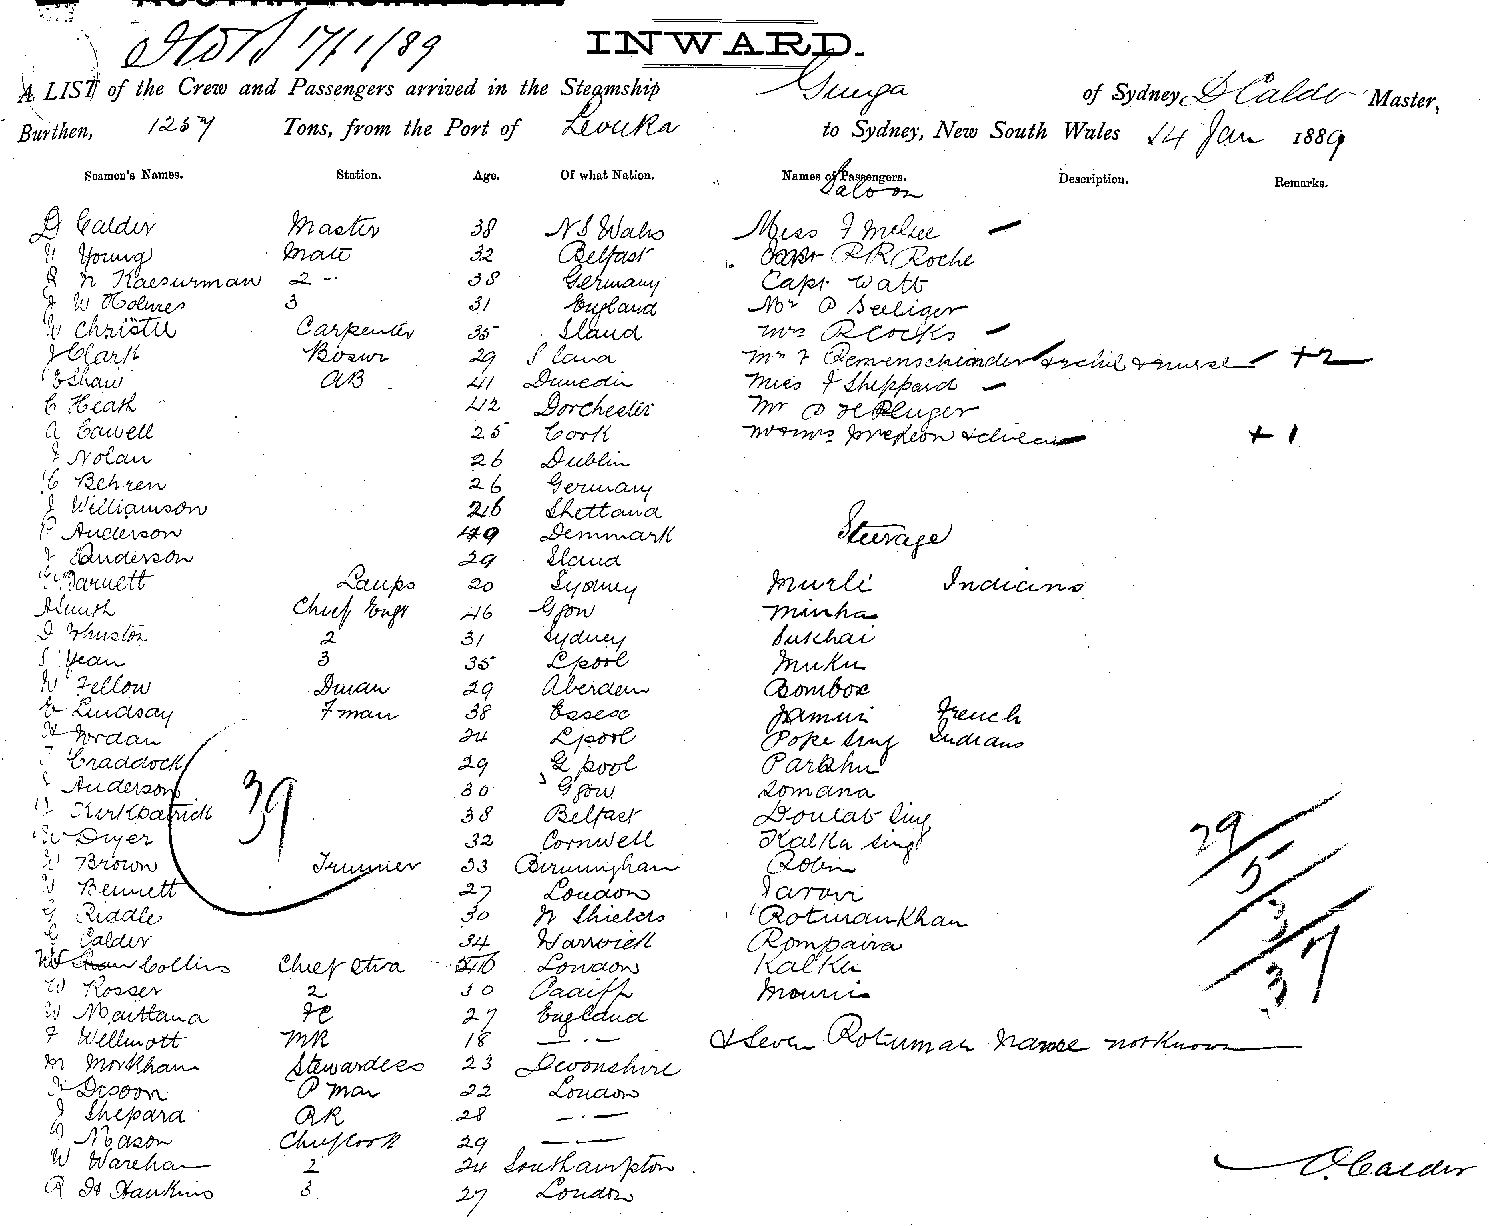 17/1/89
INWARD.
A LIST of the Crew and Passengers arrived in the Steamship Gunga of Sydney, D Calder Master,
Burthen, 1257 Tons, from the Port of Levuka to Sydney, New South Wales 14 Jan 1889
Seamen's Names. Station. Age. Of what Nation. Names of Passengers. Description. Remarks.
Saloon
D Calder Master 38 N S Wales Miss F McGee
Young Mate 32 Belfast Capt R R Roche
2 38 Germany Capt Watt
W Holmes 3 31 England Mr P Seeliger
Christie Carpenter 35 Sland Mrs R Cocks
J Clark Bosun 29 Sland Mr F child & nurse +2
E Shaw AB 41 Dunedin Miss F Sheppard
C Heath 42 Dorchester Mr
A Cawell 25 Cork Mr & Mrs & child +1
J Nolan 26 Dublin
C Behren 26 Germany
J Williamson 26 Shetland
P Anderson 49 Demmark Steerage
J Anderson 29 Sland
Barnett Lamps 20 Sydney Murli Indians
A Smith Chief Engr 46 Ggow Minha
J Whuston 2 31 Sydney Sukhai
Yean 3 35 Lpool Muku
W Fellow Dman 29 Aberdeen Bombox
E Lindsay Fman 38 Essex Jamun French
H Jordan 24 Lpool Pope Sing Indians
J Craddock 29 Lpool Parbhu
Anderson 30 Ggow Somana
39
Kirkpatrick 38 Belfast Doulat Sing
29
W Dyer 32 Cornwell Kalka Sing
W Brown Trimmer 33 Birmingham Robin
5
W Bennett 27 London Jarovi
G Riddle 30 N Shields Rotuman Khan
3
G Calder 34 Warwick Rompaira
37
W Collins Chief Stwd 46 London Kalka
W Rosser 2 30 Cardiff Mouni
W Maitland FC 27 England
F Wellmott MR 18 — · — & Seven Rotuman Name not known
M Morkham Stewardess 23 Devonshire
H Dixon P man 22 London
J Shepard RR 28 — · —
Mason Chief Cook 29 — · —
W Wareham 2 24 Southampton D. Calder
R H Hawkins 3 27 London